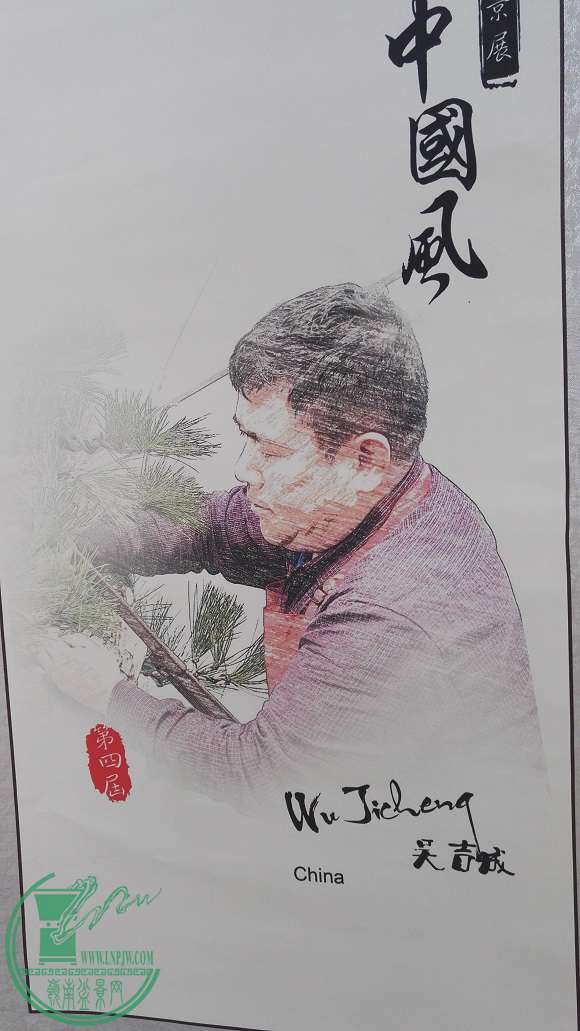 景展
中國風
第四届
Wu Jicheng
吴吉成
China
WWW.LNPJW.COM
嶺南盆景网